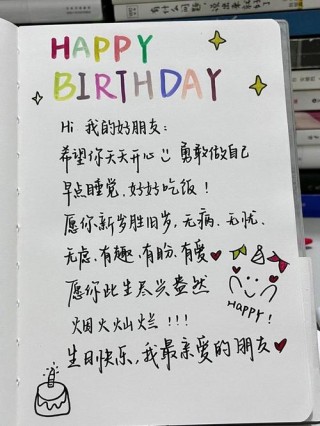 HAPPY
BIRTHDAY
Hi 我的好朋友:
希望你天天开心 勇敢做自己
早点睡觉、好好吃饭!
愿你新岁胜旧岁,无病、无忧、
无虑、有趣、有盼、有爱
愿你此生尽兴盎然
烟火灿烂!!!
Happy!
生日快乐,我最亲爱的朋友